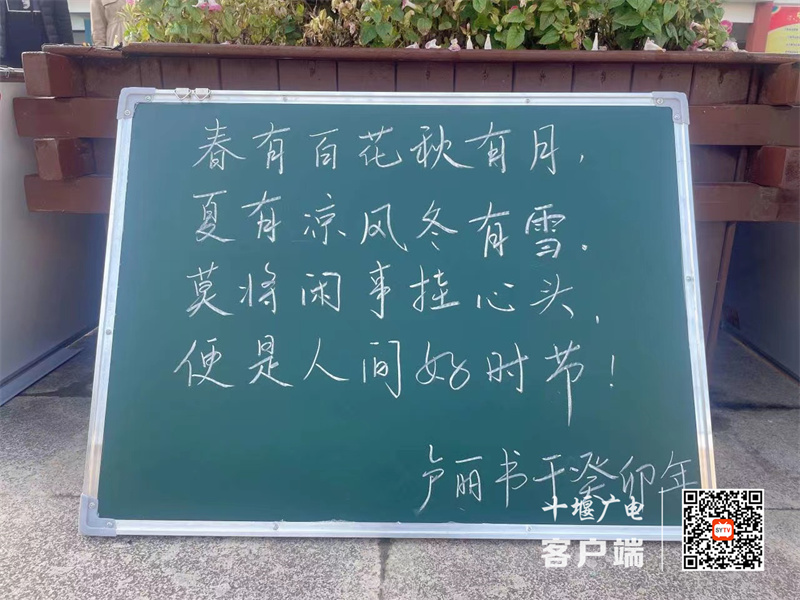 春有百花秋有月，
夏有凉风冬有雪.
莫将闲事挂心头，
便是人间好时节！
卢丽书于癸卯年
十堰广电
客户端
SYTV